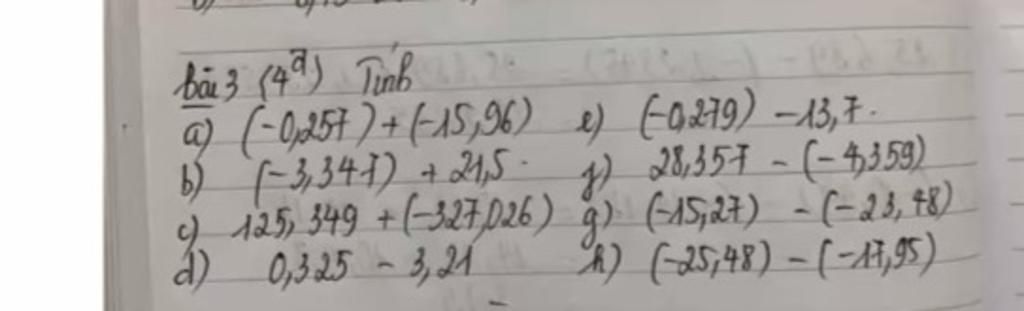 bài 3 (4đ) Tính
a) (-0,257) + (-15,96) e) (-0,279) - 13,7.
b) (-3,347) + 21,5. f) 28,357 - (-4,359)
c) 125,349 + (-327,026) g) (-15,27) - (-23,48)
d) 0,325 - 3,21 h) (-25,48) - (-17,95)